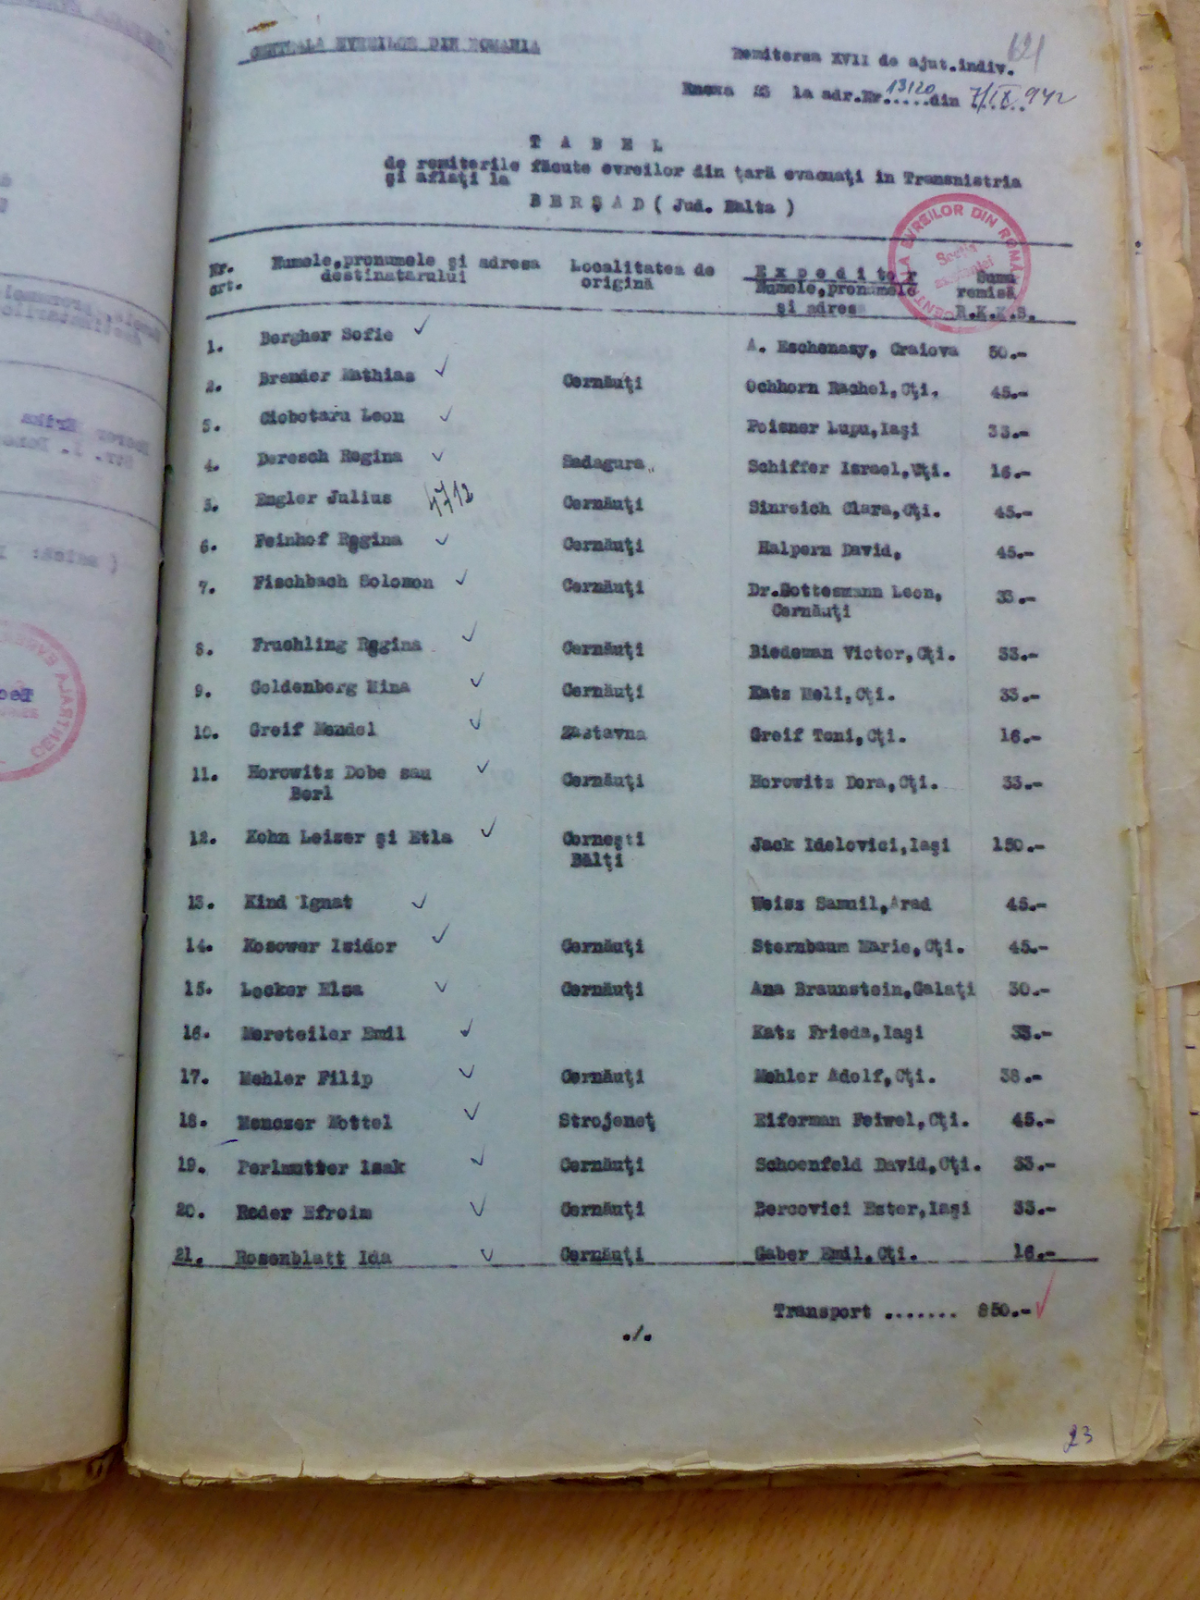 CENTRALA EVREILOR DIN ROMANIA
121
Remiterea XVII de ajut.indiv.
Enexa 23 la adr.Nr.13120 din 7/IX 942
T A B E L
de remiterile făcute evreilor din ţară evacuaţi in Transnistria
şi aflaţi la
B E R Ş A D ( Jud. Balta )
Nr. crt. Numele,pronumele şi adresa destinatarului Localitatea de origină E x p e d i t o r Numele,pronumele şi adresa Suma remisă R.K.K.S.
1. Bergher Sofie A. Eschenasy, Craiova 50.-
2. Brender Mathias Cernăuţi Ochhorn Rachel,Cţi. 45.-
3. Ciobotaru Leon Poisner Lupu,Iaşi 33.-
4. Deresch Regina Sadagura Schiffer Israel,Cţi. 16.-
5. Engler Julius 4712 Cernăuţi Sinreich Clara,Cţi. 45.-
6. Feinhof Regina Cernăuţi Halpern David, 45.-
7. Fischbach Solomon Cernăuţi Dr.Gottesmann Leon, 33.-
Cernăuţi
8. Fruchling Regina Cernăuţi Biedeman Victor,Cţi. 33.-
9. Goldenberg Mina Cernăuţi Katz Meli,Cţi. 33.-
10. Greif Mendel Zastavna Greif Toni,Cţi. 16.-
11. Horowitz Dobe sau Cernăuţi Horowitz Dora,Cţi. 33.-
Berl
12. Kohn Leizer şi Etla Corneşti Jack Idelovici,Iaşi 150.-
Bălţi
13. Kind Ignat Weisz Samuil,Arad 45.-
14. Kosower Isidor Cernăuţi Sternbaum Marie,Cţi. 45.-
15. Locker Elsa Cernăuţi Ana Braunstein,Galaţi 30.-
16. Mereteiler Emil Katz Frieda,Iaşi 33.-
17. Mehler Filip Cernăuţi Mehler Adolf,Cţi. 38.-
18. Menczer Mottel Strojeneţ Eiferman Feiwel,Cţi. 45.-
19. Perlmutter Isak Cernăuţi Schoenfeld David,Cţi. 33.-
20. Reder Efroim Cernăuţi Bercovici Ester,Iaşi 33.-
21. Rosenblatt Ida Cernăuţi Gaber Emil,Cţi. 16.-
Transport ....... 850.-
./.
23